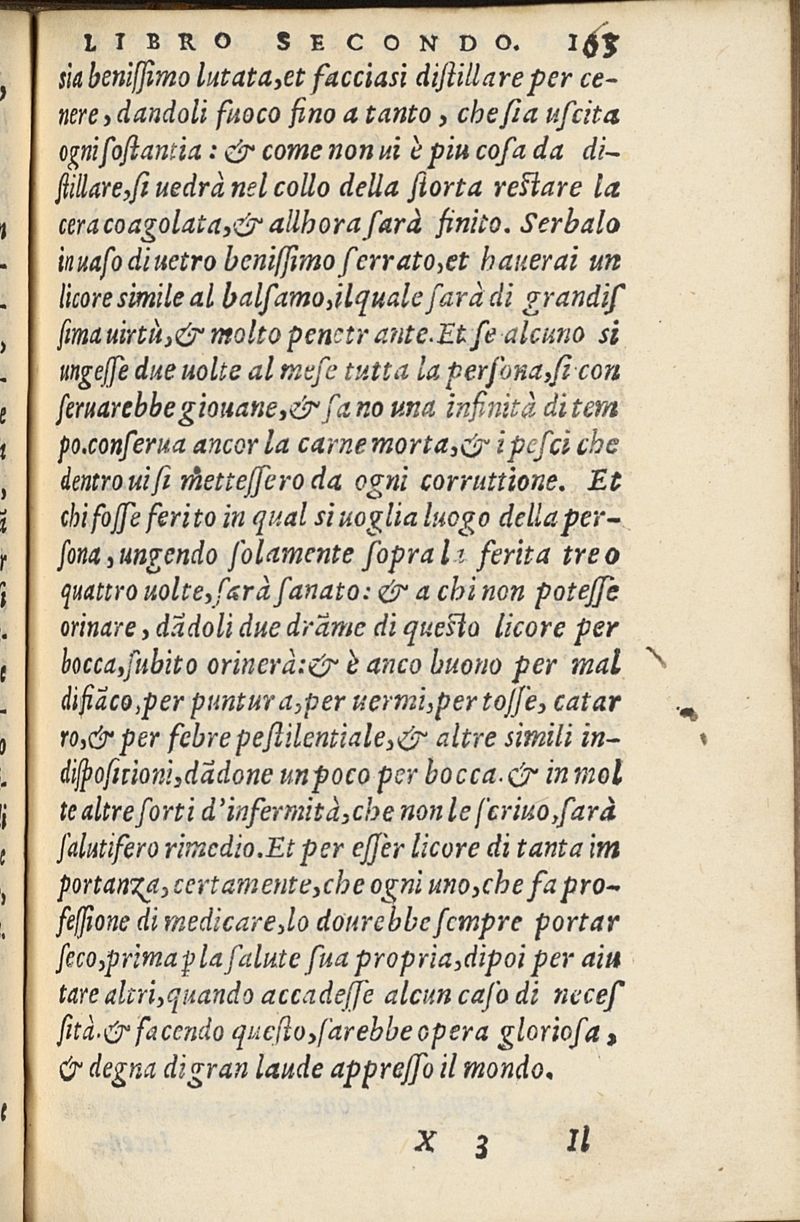 LIBRO SECONDO. 163
sia benissimo lutata,et facciasi distillare per ce-
nere, dandoli fuoco fino a tanto, che sia uscita
ogni sostantia: & come non ui è piu cosa da di-
stillare,si uedrà nel collo della storta restare la
cera coagolata,& allhora sarà finito. Serbalo
in uaso di uetro benissimo serrato,et hauerai un
licore simile al balsamo,ilquale sarà di grandis
sima uirtù,& molto penetrante.Et se alcuno si
ungesse due uolte al mese tutta la persona,si con
seruarebbe giouane,& sano una infinità di tem
po.conserua ancor la carne morta,& i pesci che
dentro ui si mettessero da ogni corruttione. Et
chi fosse ferito in qual si uoglia luogo della per-
sona, ungendo solamente sopra la ferita tre o
quattro uolte,sarà sanato: & a chi non potesse
orinare, dãdoli due drãme di questo licore per
bocca,subito orinerà:& è anco buono per mal
di fiãco,per puntura,per uermi,per tosse, catar
ro,& per febre pestilentiale,& altre simili in-
dispositioni,dãdone un poco per bocca.& in mol
te altre sorti d'infermità,che non le scriuo,sarà
salutifero rimedio.Et per esser licore di tanta im
portanza,certamente,che ogni uno,che fa pro-
fessione di medicare,lo dourebbe sempre portar
seco,prima ꝑ la salute sua propria,dipoi per aiu
tare altri,quando accadesse alcun caso di neces
sità.& facendo questo,sarebbe opera gloriosa,
& degna di gran laude appresso il mondo.
X 3 Il